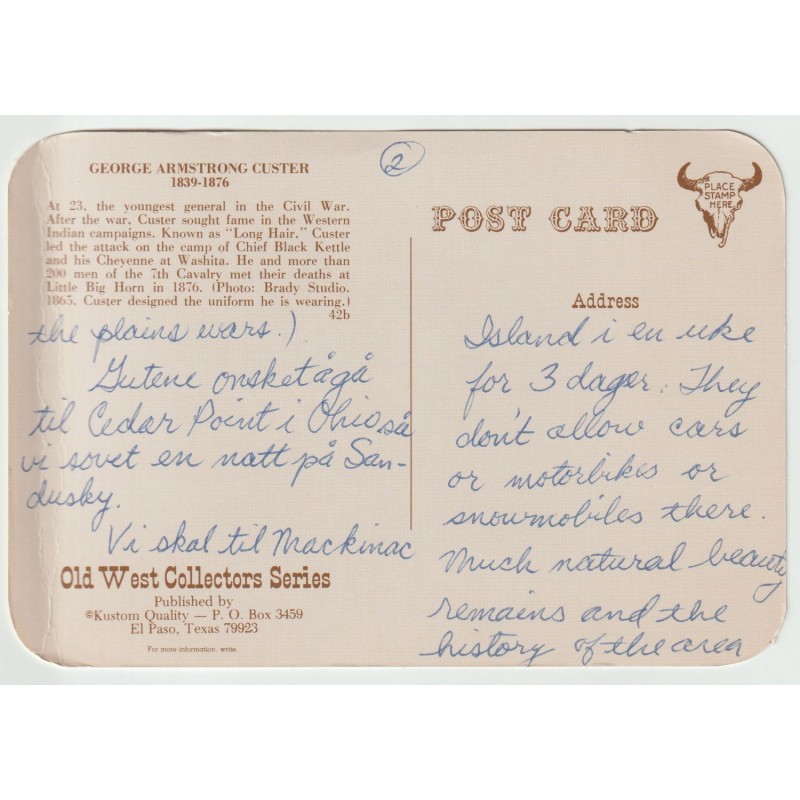 2
GEORGE ARMSTRONG CUSTER
1839-1876
At 23, the youngest general in the Civil War.
After the war, Custer sought fame in the Western
Indian campaigns. Known as "Long Hair," Custer
led the attack on the camp of Chief Black Kettle
and his Cheyenne at Washita. He and more than
200 men of the 7th Cavalry met their deaths at
Little Big Horn in 1876. (Photo: Brady Studio.
1865. Custer designed the uniform he is wearing.)
42b
the plains wars.)
Gutene onsket å gå
til Cedar Point i Ohio så
vi sovet en natt på San-
dusky.
Vi skal til Mackinac
Old West Collectors Series
Published by
©Kustom Quality — P. O. Box 3459
El Paso, Texas 79923
For more information, write.
POST CARD
PLACE
STAMP
HERE
Address
Island i en uke
for 3 dager. They
don't allow cars
or motorbikes or
snowmobiles there.
Much natural beauty
remains and the
history of the area